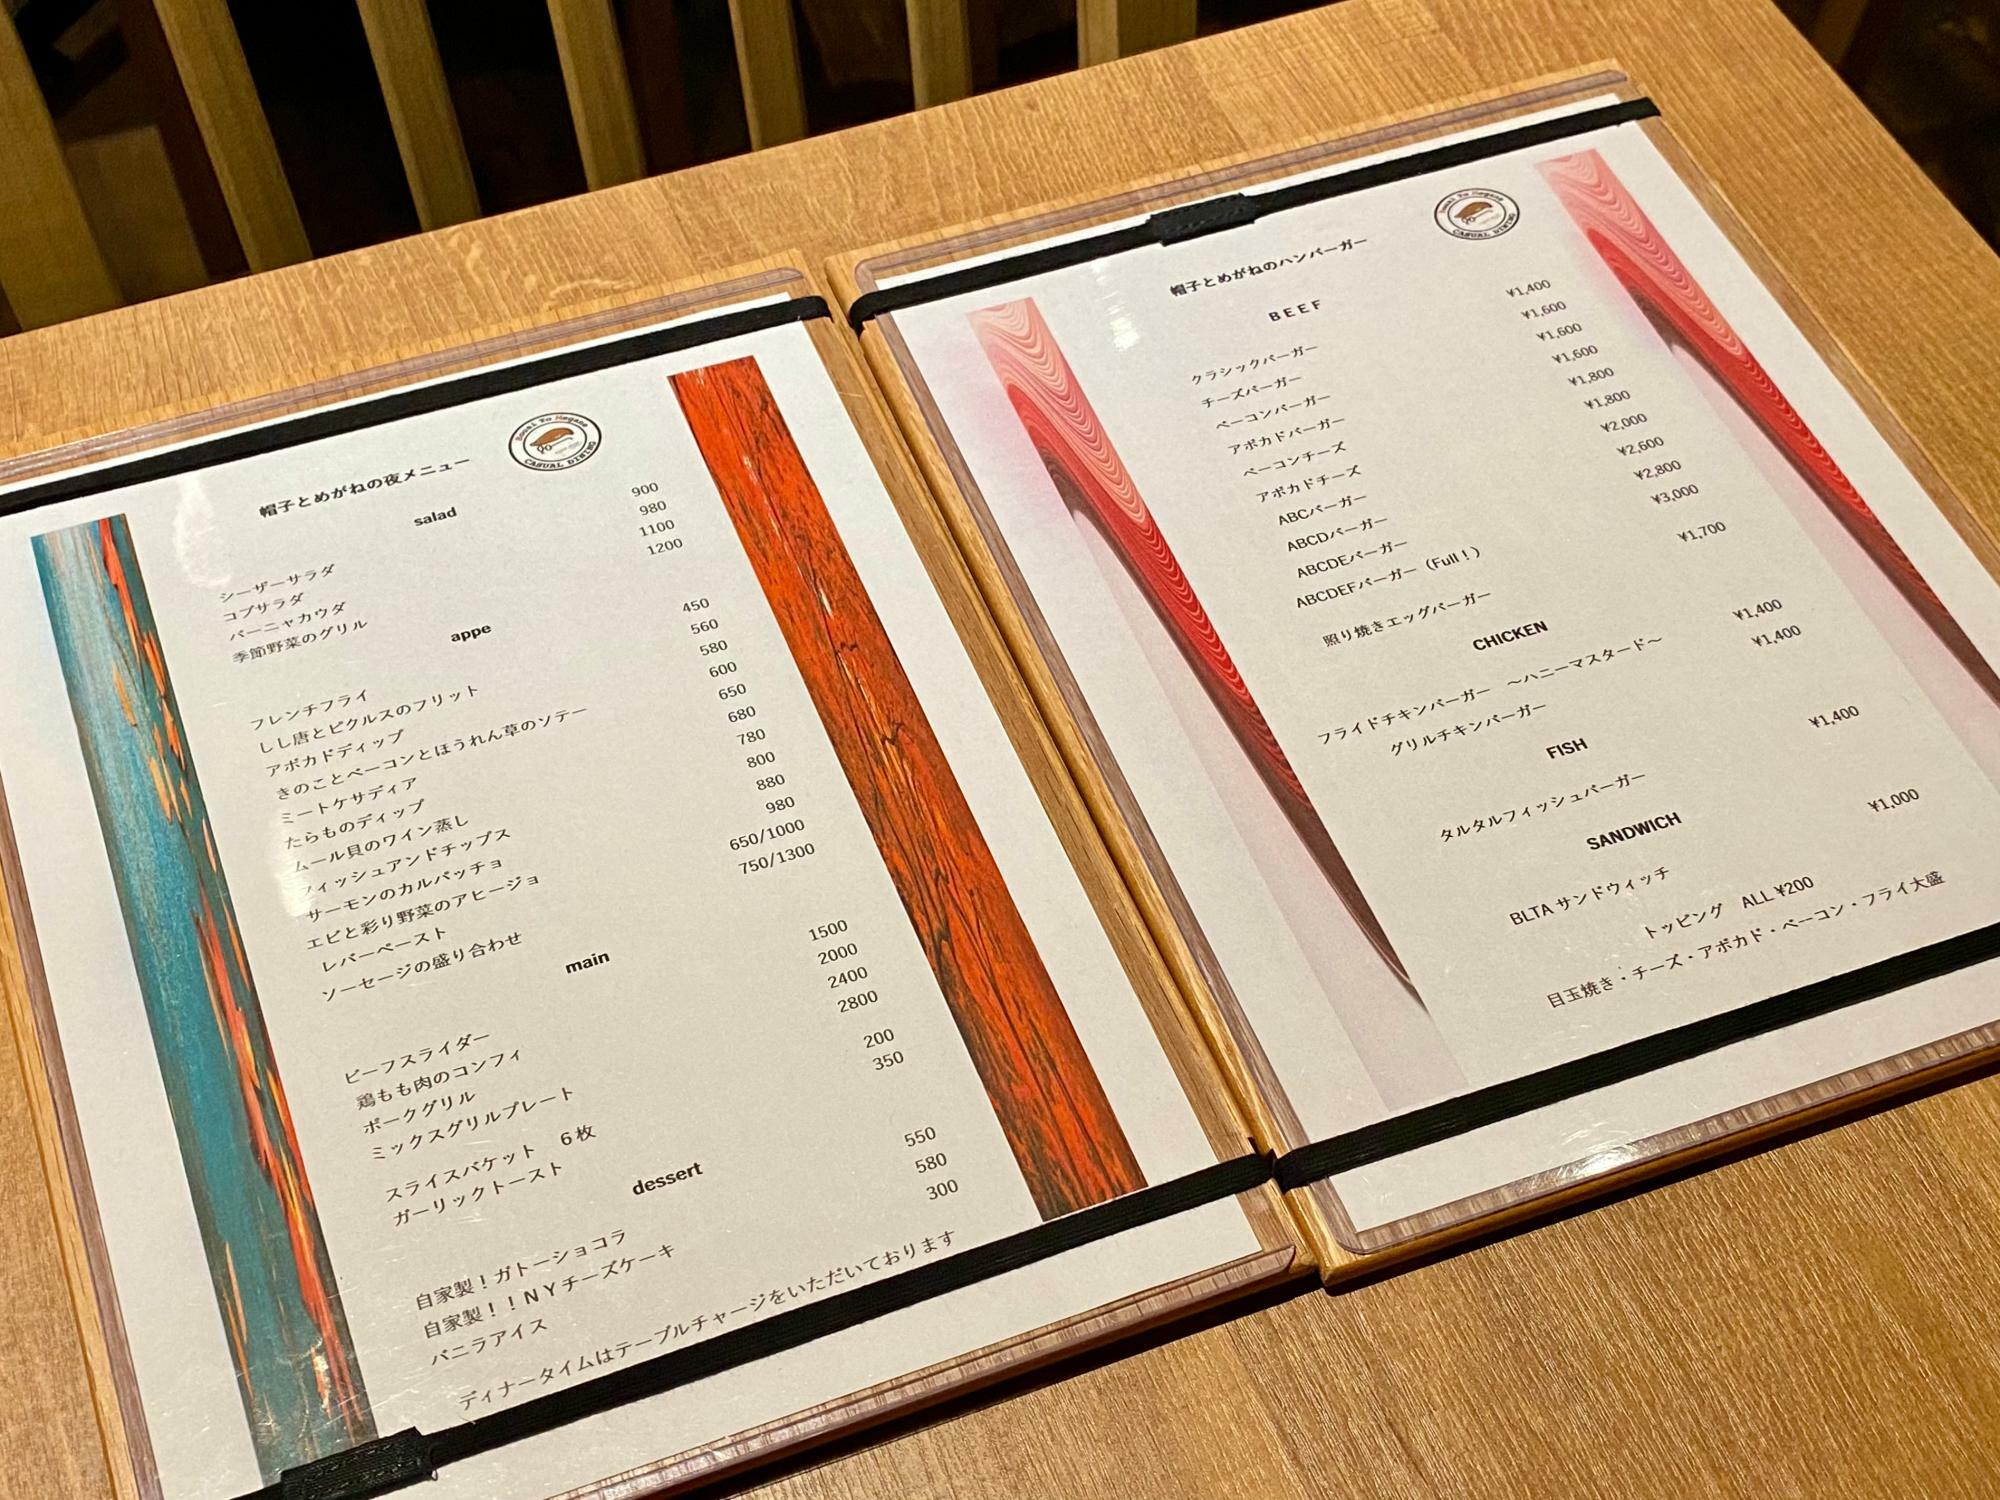 帽子とめがねの夜メニュー
Boushi To Megane
CASUAL DINING
salad
シーザーサラダ 900
コブサラダ 980
バーニャカウダ 1100
季節野菜のグリル 1200
appe
フレンチフライ 450
しし唐とピクルスのフリット 560
アボカドディップ 580
きのことベーコンとほうれん草のソテー 600
ミートケサディア 650
たらものディップ 680
ムール貝のワイン蒸し 780
フィッシュアンドチップス 800
サーモンのカルパッチョ 880
エビと彩り野菜のアヒージョ 980
レバーペースト 650/1000
ソーセージの盛り合わせ 750/1300
main
ビーフスライダー 1500
鶏もも肉のコンフィ 2000
ポークグリル 2400
ミックスグリルプレート 2800
スライスバケット 6枚 200
ガーリックトースト 350
dessert
自家製！ガトーショコラ 550
自家製！！NYチーズケーキ 580
バニラアイス 300
ディナータイムはテーブルチャージをいただいております
帽子とめがねのハンバーガー
Boushi To Megane
CASUAL DINING
BEEF
クラシックバーガー ¥1,400
チーズバーガー ¥1,600
ベーコンバーガー ¥1,600
アボカドバーガー ¥1,600
ベーコンチーズ ¥1,800
アボカドチーズ ¥1,800
ABCバーガー ¥2,000
ABCDバーガー ¥2,600
ABCDEバーガー ¥2,800
ABCDEFバーガー（Full！） ¥3,000
照り焼きエッグバーガー ¥1,700
CHICKEN
フライドチキンバーガー ～ハニーマスタード～ ¥1,400
グリルチキンバーガー ¥1,400
FISH
タルタルフィッシュバーガー ¥1,400
SANDWICH
BLTAサンドウィッチ ¥1,000
トッピング ALL ¥200
目玉焼き・チーズ・アボカド・ベーコン・フライ大盛